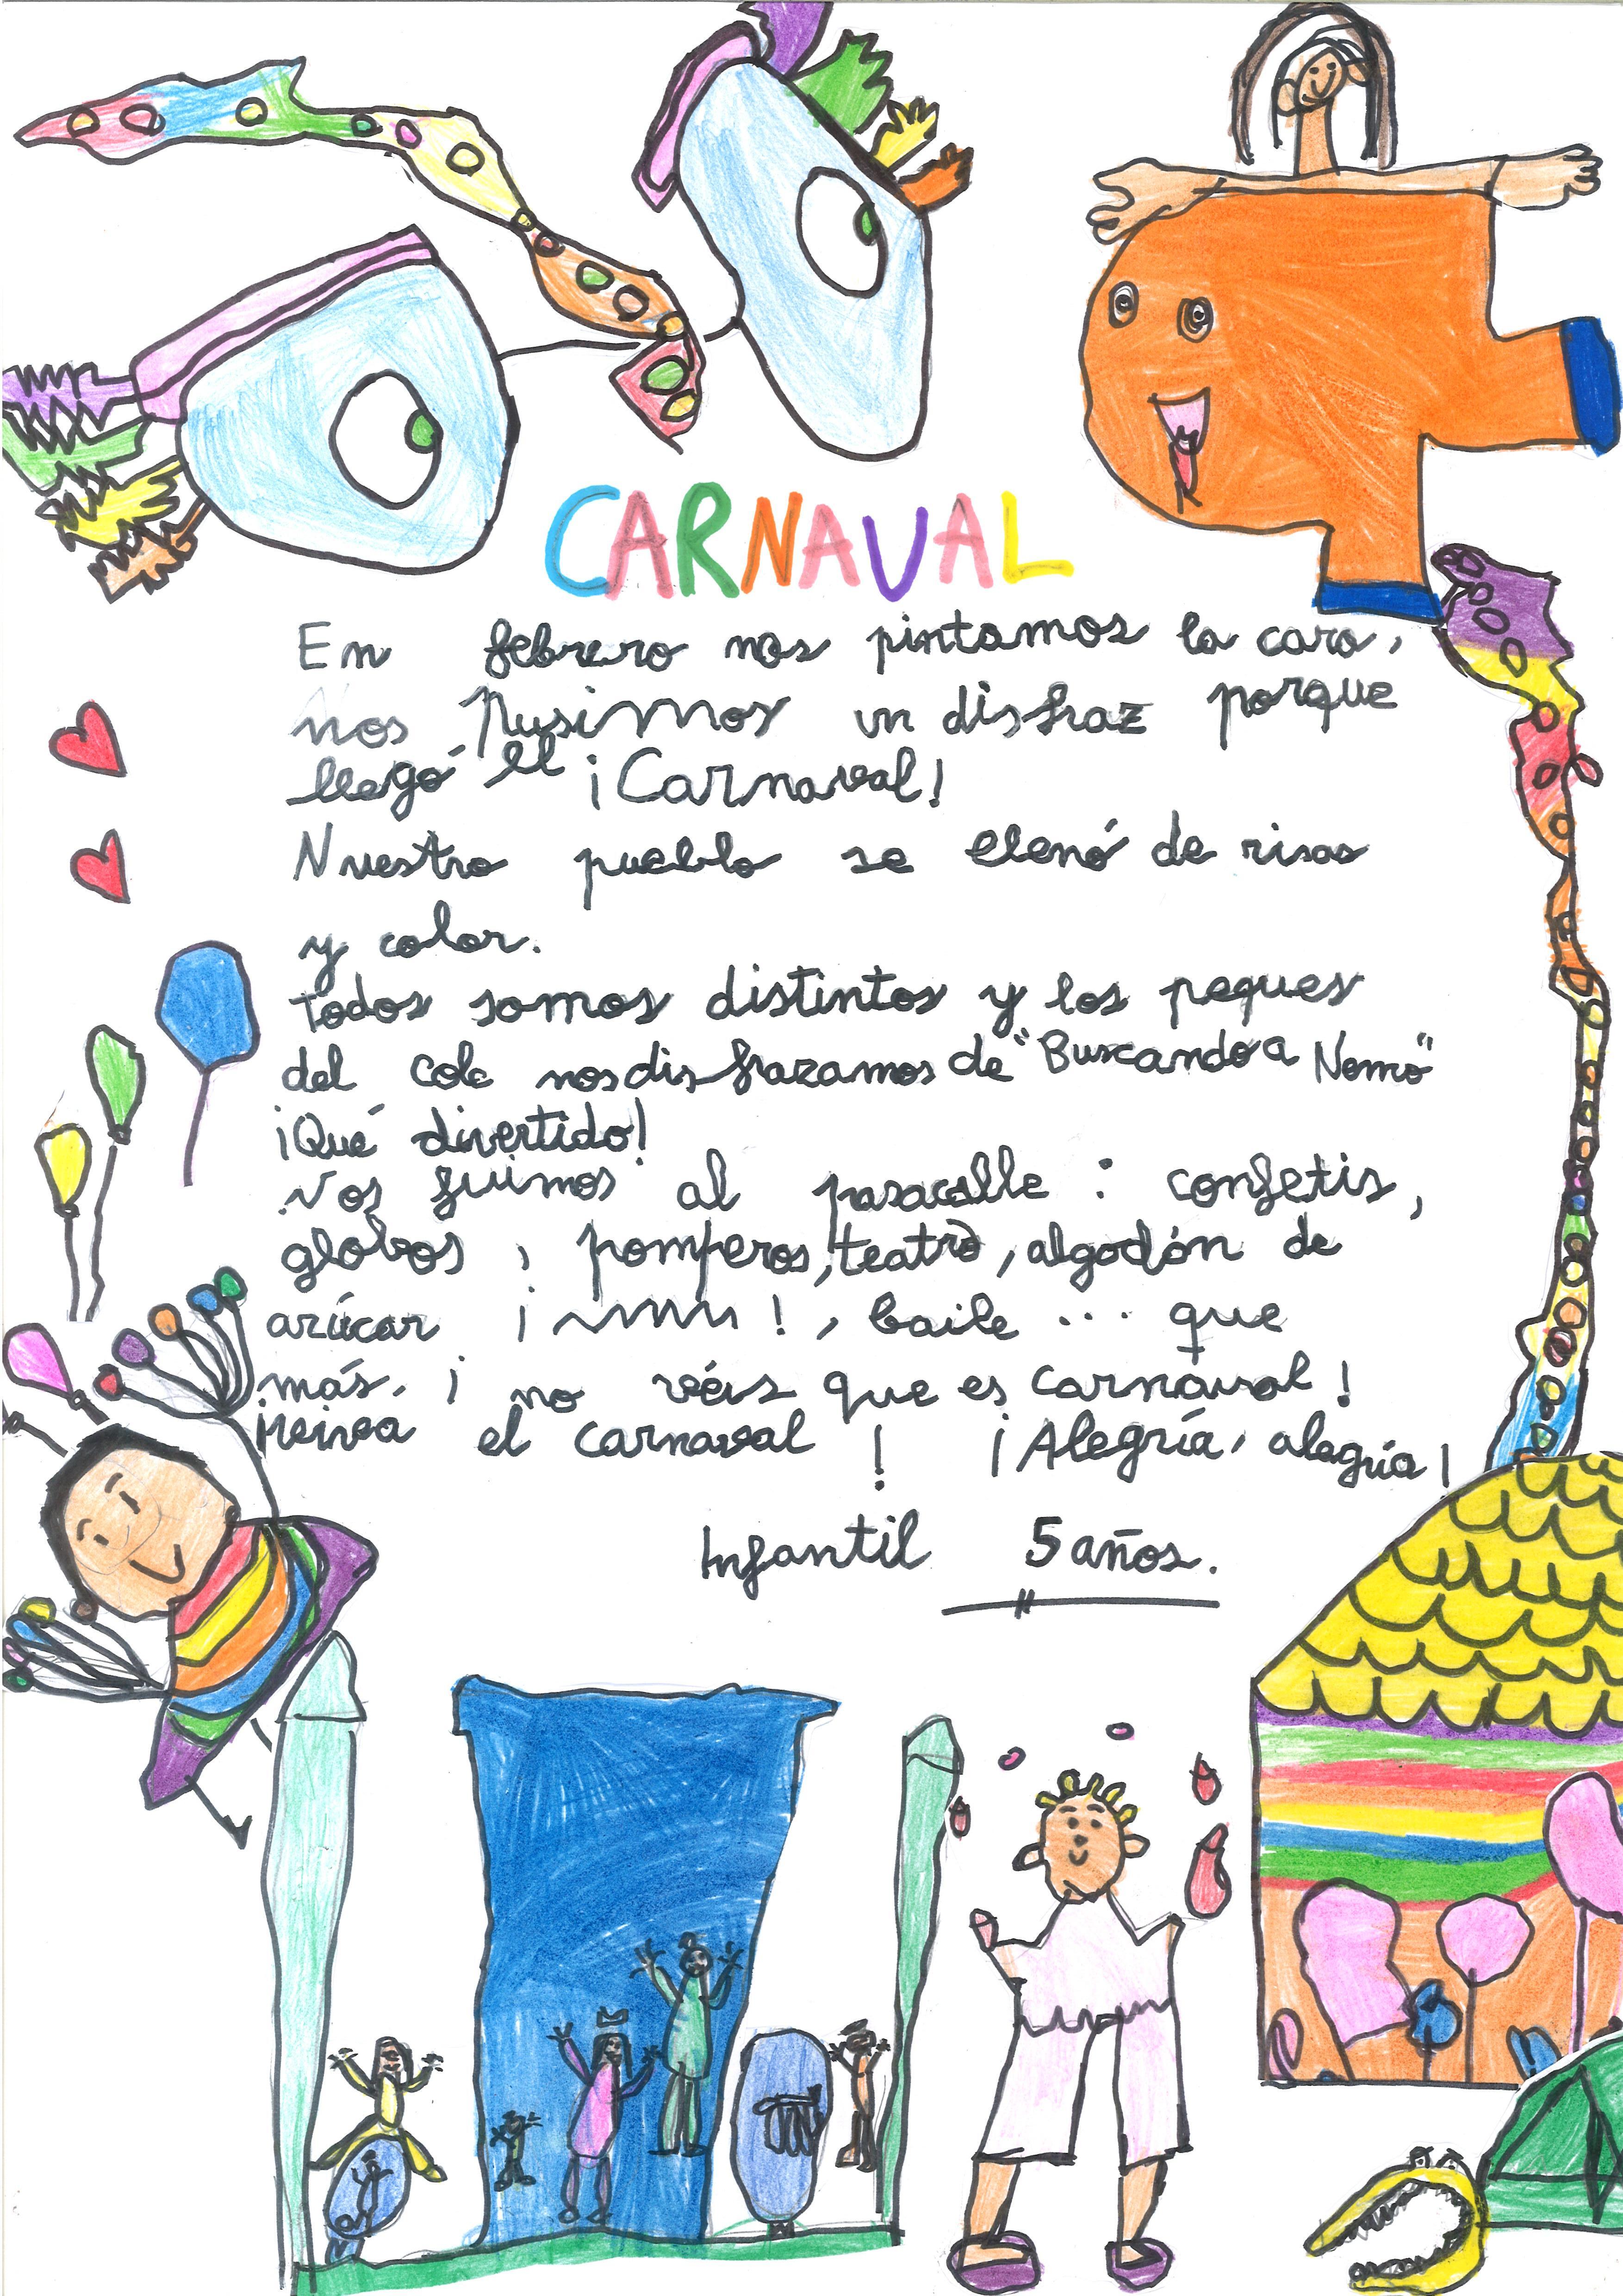 CARNAVAL
En febrero nos pintamos la cara,
nos pusimos un disfraz porque
llegó el ¡Carnaval!
Nuestro pueblo se llenó de risas
y color.
Todos somos distintos y los peques
del cole nos disfrazamos de "Buscando a Nemo"
¡Qué divertido!
Nos fuimos al pasacalle: confetis,
globos, pomperos, teatro, algodón de
azúcar ¡mmmm!, baile... que
más, ¡no véis que es carnaval!
¡Reina el carnaval! ¡Alegría, alegría!
Infantil 5 años.